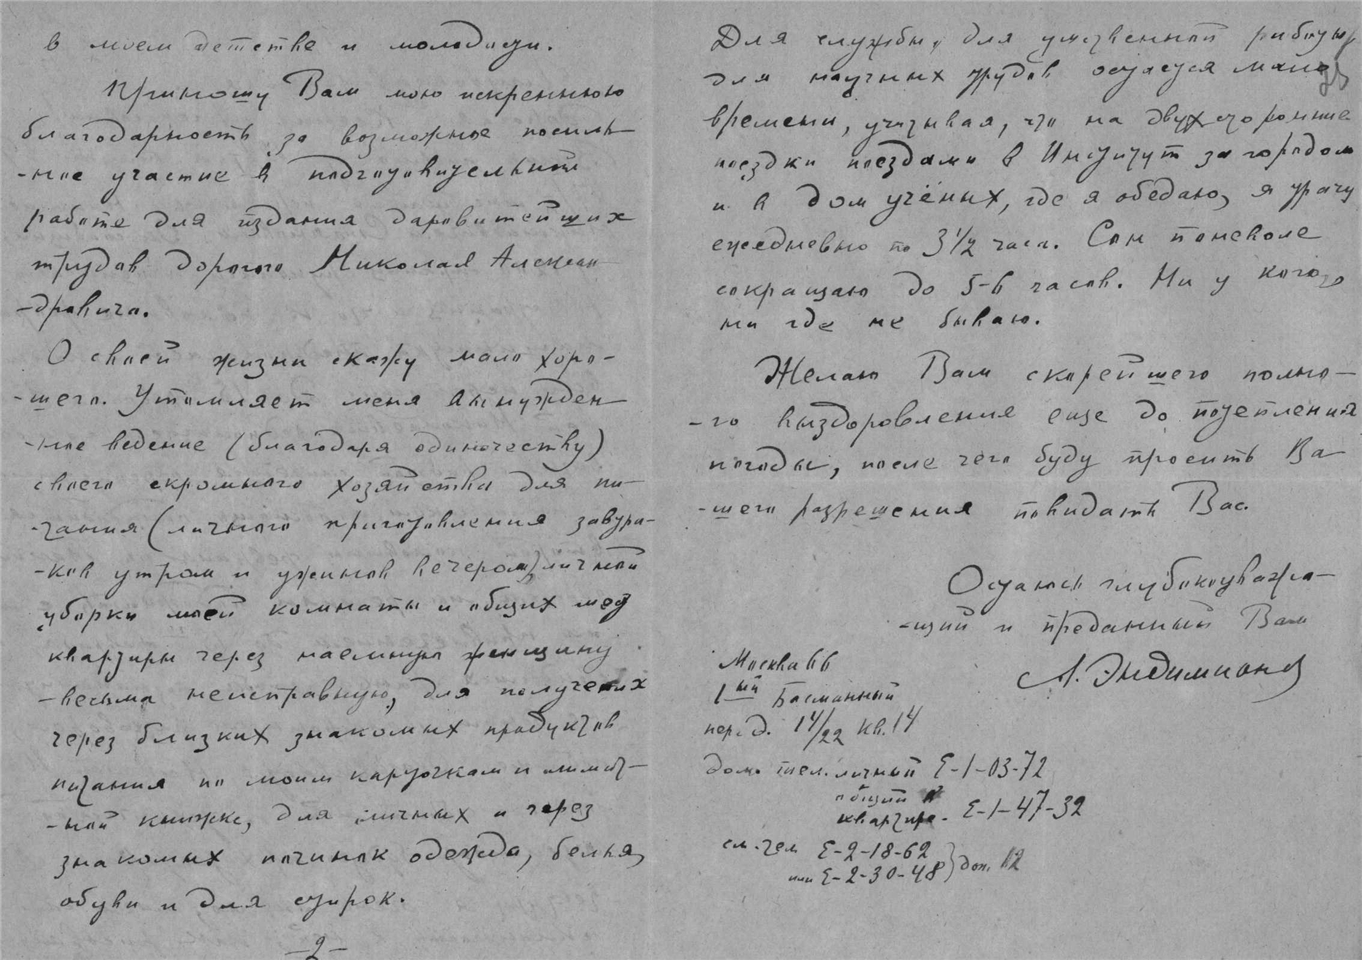 в моем детстве и молодости.
Приношу Вам мою искреннюю
благодарность за возможное посиль-
-ное участие в подготовительной
работе для издания даровитейших
трудов дорогого Николая Алексан-
-дровича.
О своей жизни скажу мало хоро-
-шего. Утомляет меня вынужден-
-ное ведение (благодаря одиночеству)
своего скромного хозяйства для пи-
-тания (личного приготовления завтра-
-ков утром и ужинов вечером), личной
уборки моей комнаты и общих мест
квартиры через наемную женщину
-весьма неисправную, для получения
через близких знакомых продуктов
питания по моим карточкам и лимит-
-ной книжке, для личных и через
знакомых починок одежды, белья,
обуви и для стирок.
-2-
Для службы, для умственной работы,
для научных трудов остается мало
25
времени, учитывая, что на двухсторонние
поездки поездами в Институт за городом
и в дом учёных, где я обедаю, я трачу
ежедневно по 3½ часа. Сон поневоле
сокращаю до 5-6 часов. Ни у кого
ни где не бываю.
Желаю Вам скорейшего полно-
-го выздоровления еще до потепления
погоды, после чего буду просить Ва-
-шего разрешения повидать Вас.
Остаюсь глубокоуважаю-
-щий и преданный Вам
Москва 66
1ый Басманный
пер. д. 14/22 кв. 14
дом. тел. личный Е-1-03-72
общий в
квартире. Е-1-47-32
Е-2-18-62
или Е-2-30-48 } доп. 12